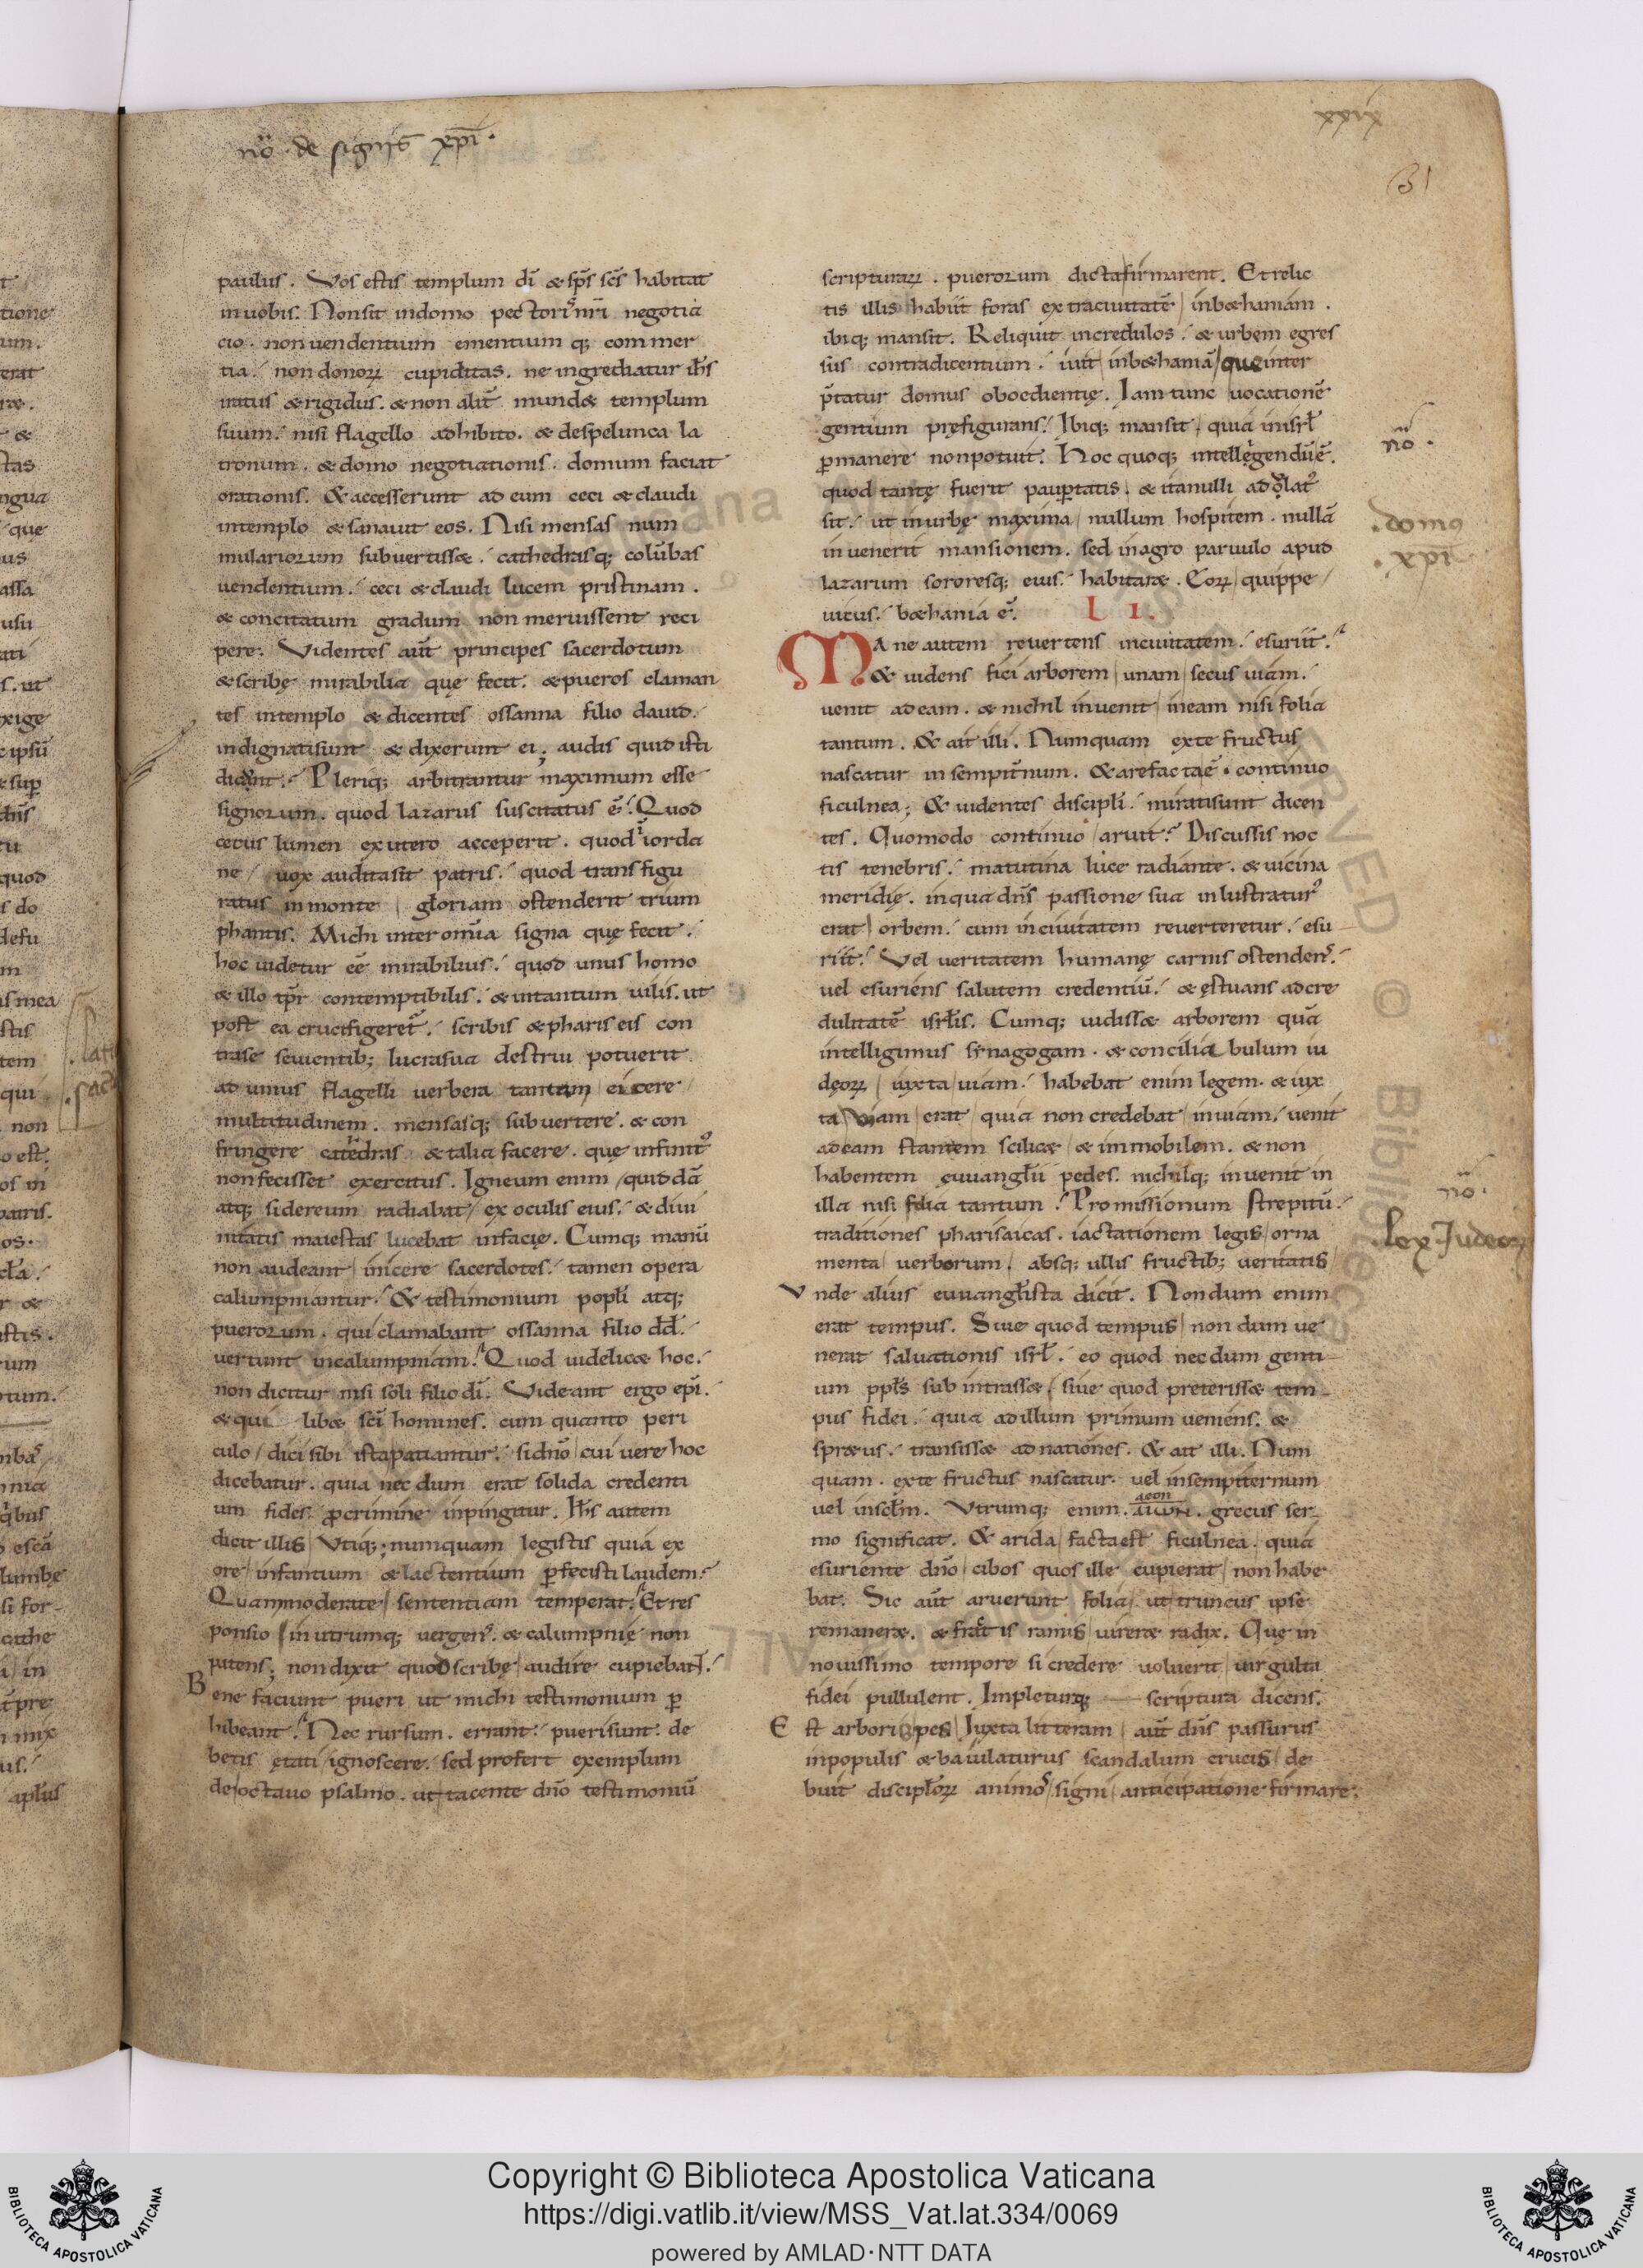 nõ. de signis xpi.
xxix
31
paulus. Vos estis templum dī & sp̄s sc̄s habitat
in uobis. Non sit in domo pectoris nr̄i negotia
cio. non uendentium ementium q; commer
tia. non donoꝝ cupiditas. ne ingrediatur ih̄s
iratus & rigidus. & non alit̄ mund& templum
suum. nisi flagello adhibito. & de spelunca la
tronum. & domo negotiationis. domum faciat
orationis. & accesserunt ad eum ceci & claudi
in templo & sanauit eos. Nisi mensas num
mulariorum subuertiss&. cathedrasq; colūbas
uendentium. ceci & claudi lucem pristinam.
& concitatum gradum non meruissent reci
pere. Videntes aūt principes sacerdotum
& scribę mirabilia quę fecit. & pueros claman
tes in templo & dicentes ossanna filio dauid.
indignati sunt & dixerunt ei; audis quid isti
dicunt. Pleriq; arbitrantur maximum esse
signorum. quod lazarus suscitatus ē. Quod
cecus lumen ex utero acceperit. quod i iorda
ne uox audita sit patris. quod transfigu
ratus in monte gloriam ostenderit trium
phantis. Michi inter om̄ia signa quę fecit.
hoc uidetur eē mirabilius. quod unus homo
& illo tp̄r contemptibilis. & in tantum uilis. ut
post ea crucifigeret̄. scribis & phariseis con
tra se seuientib; lucra sua destrui potuerit
ad unius flagelli uerbera tantam eicere
multitudinem. mensasq; subuertere. & con
fringere catedras & talia facere. quę infinit᷒
non fecisset exercitus. Igneum enim quiddā
atq; sidereum radiabat ex oculis eius. & diui
nitatis maiestas lucebat in facie. Cumq; manū
non audeant inicere sacerdotes. tamen opera
calumpniantur. & testimonium popl̄i atq;
puerorum. qui clamabant ossanna filio dd̄.
uertunt in calumpniam. Quod uidelic& hoc.
non dicitur nisi soli filio dī. Videant ergo ep̄i.
& qui lib& sc̄i homines. cum quanto peri
culo dici sibi ista patiantur. si dnō cui uere hoc
dicebatur. quia nec dum erat solida credenti
um fides. ꝓ crimine inpingitur. Ih̄s autem
dicit illis Vtiq; numquam legistis quia ex
ore infantium & lactentium ꝑfecisti laudem.
Quam moderate sententiam temperat. Et res
ponsio in utrumq; uergens. & calumpnię non
patens; non dixit quod scribę audire cupiebant.
Bene faciunt pueri ut michi testimonium ꝑ
hibeant. Nec rursum. errant. pueri sunt. de
betis ętati ignoscere. sed profert exemplum
de octauo psalmo. ut tacente dnō testimoniū
scripturaꝝ. puerorum dicta firmarent. Et relic
tis illis habiit foras extra ciuitatē in b&haniam.
ibiq; mansit. Reliquit incredulos. & urbem egres
sus contradicentium. iuit in b&haniā que inter
p̄tatur domus oboedientię. Iam tunc uocationē
gentium pręfigurans. Ibiq; mansit quia in isrl̄
ꝑmanere non potuit. Hoc quoq; intellegendū ē.
quod tantę fuerit pauꝑtatis. & ita nulli adolat᷒
sit. ut in urbe maxima nullum hospitem. nullā
inuenerit mansionem. sed in agro paruulo apud
lazarum sororesq; eius. habitar&. Eoꝝ quippe
uicus. b&hania ē. L I.
Mane autem reuertens in ciuitatem. esuriit.
& uidens fici arborem unam secus uiam.
uenit ad eam. & nichil inuenit in eam nisi folia
tantum. & ait illi. Numquam ex te fructus
nascatur in sempit̄num. & arefacta ē. continuo
ficulnea; & uidentes discipl̄i. mirati sunt dicen
tes. Quomodo continuo aruit. Discussis noc
tis tenebris. matutina luce radiante. & uicina
meridię. in qua dn̄s passione sua inlustratur᷒
erat orbem. cum in ciuitatem reuerteretur. esu
riit. Vel ueritatem humanę carnis ostendens.
uel esuriens salutem credentiū. & ęstuans ad cre
dulitatē isrl̄is. Cumq; uidiss& arborem quā
intelligimus synagogam. & conciliabulum iu
dęoꝝ iuxta uiam. habebat enim legem. & iux
ta uiam erat quia non credebat in uiam. uenit
ad eam stantem scilic& & immobilem. & non
habentem euuangl̄ii pedes. nichilq; inuenit in
illa nisi folia tantum. Promissionum strepitū.
traditiones pharisaicas. iactationem legis orna
menta uerborum. absq; ullis fructib; ueritatis
Vnde alius euuangl̄ista dicit. Non dum enim
erat tempus. Siue quod tempus non dum ue
nerat saluationis isrl̄. eo quod nec dum genti
um ppl̄s subintrass&. siue quod preteriss& tem
pus fidei. quia ad illum primum ueniens. &
spr&us. transiss& ad nationes. & ait illi. Num
quam. ex te fructus nascatur. uel in sempiternum
uel in scl̄m. Vtrumq; enim. aeon ΑΙΩΝ. grecus ser
mo significat. & arida facta est ficulnea. quia
esuriente dnō cibos quos ille cupierat non habe
bat. Sic aūt aruerunt folia. ut truncus ipse
remaner&. & fractis ramis uirer& radix. Quę in
nouissimo tempore si credere uoluerit uirgulta
fidei pullulent. Impleturq; scriptura dicens.
Est arbori spes. Iuxta litteram aūt dn̄s passurus
in populis & baiulaturus scandalum crucis de
buit discipl̄oꝝ animos signi anticipatione firmare.
nõ.
.domus
.xpi
nõ.
.lex Iudeoꝝ
Copyright © Biblioteca Apostolica Vaticana
https://digi.vatlib.it/view/MSS_Vat.lat.334/0069
powered by AMLAD·NTT DATA
BIBLIOTECA APOSTOLICA VATICANA
BIBLIOTECA APOSTOLICA VATICANA